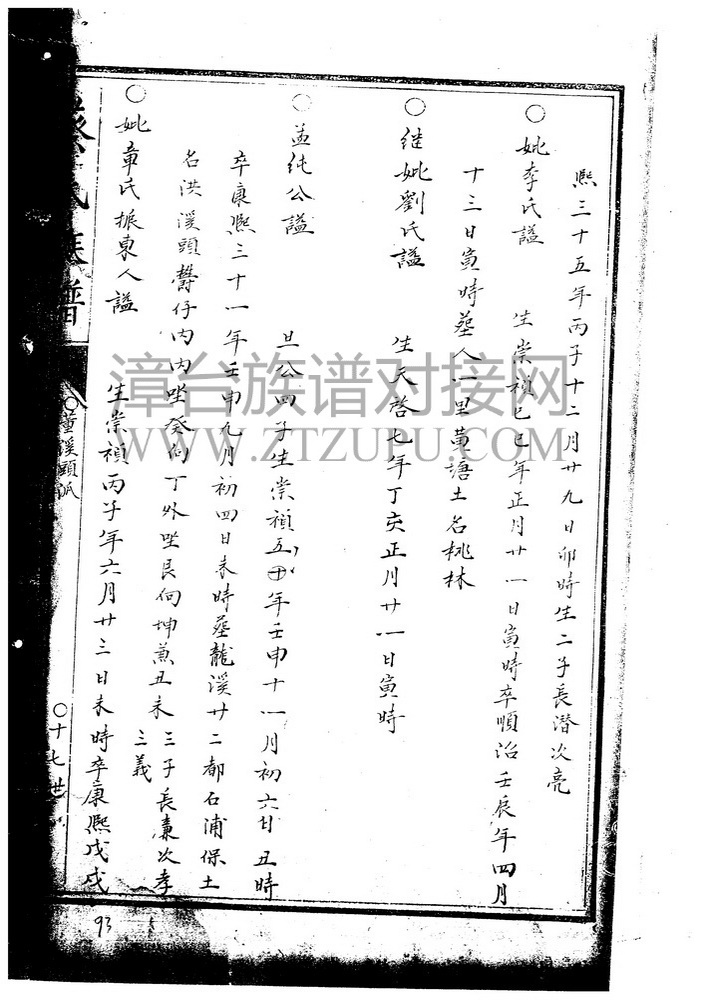 熙三十五年丙子十二月廿九日卯時生二子長潛次亮
○妣李氏謚 生崇禎己巳年正月廿一日寅時卒順治壬辰年四月
十三日寅時葬人一里黄塘土名桃林
○继妣劉氏謚 生天啓七年丁亥正月廿一日寅時
○孟纯公謚 旦公四子生崇禎五年壬申十一月初六廿丑時
卒康熙三十一年壬申九月初四日未時葬龍溪廿二都石浦保土
名洪溪頭欝仔内内坐癸向丁外坐艮向坤兼丑未 三子長亷次孝
三義
○妣章氏振東人謚 生崇禎丙子年六月廿三日未時卒康熙戊戌
氏族譜
○董溪頭派
○十七世
93
漳台族谱对接网
WWW.ZTZUPU.COM